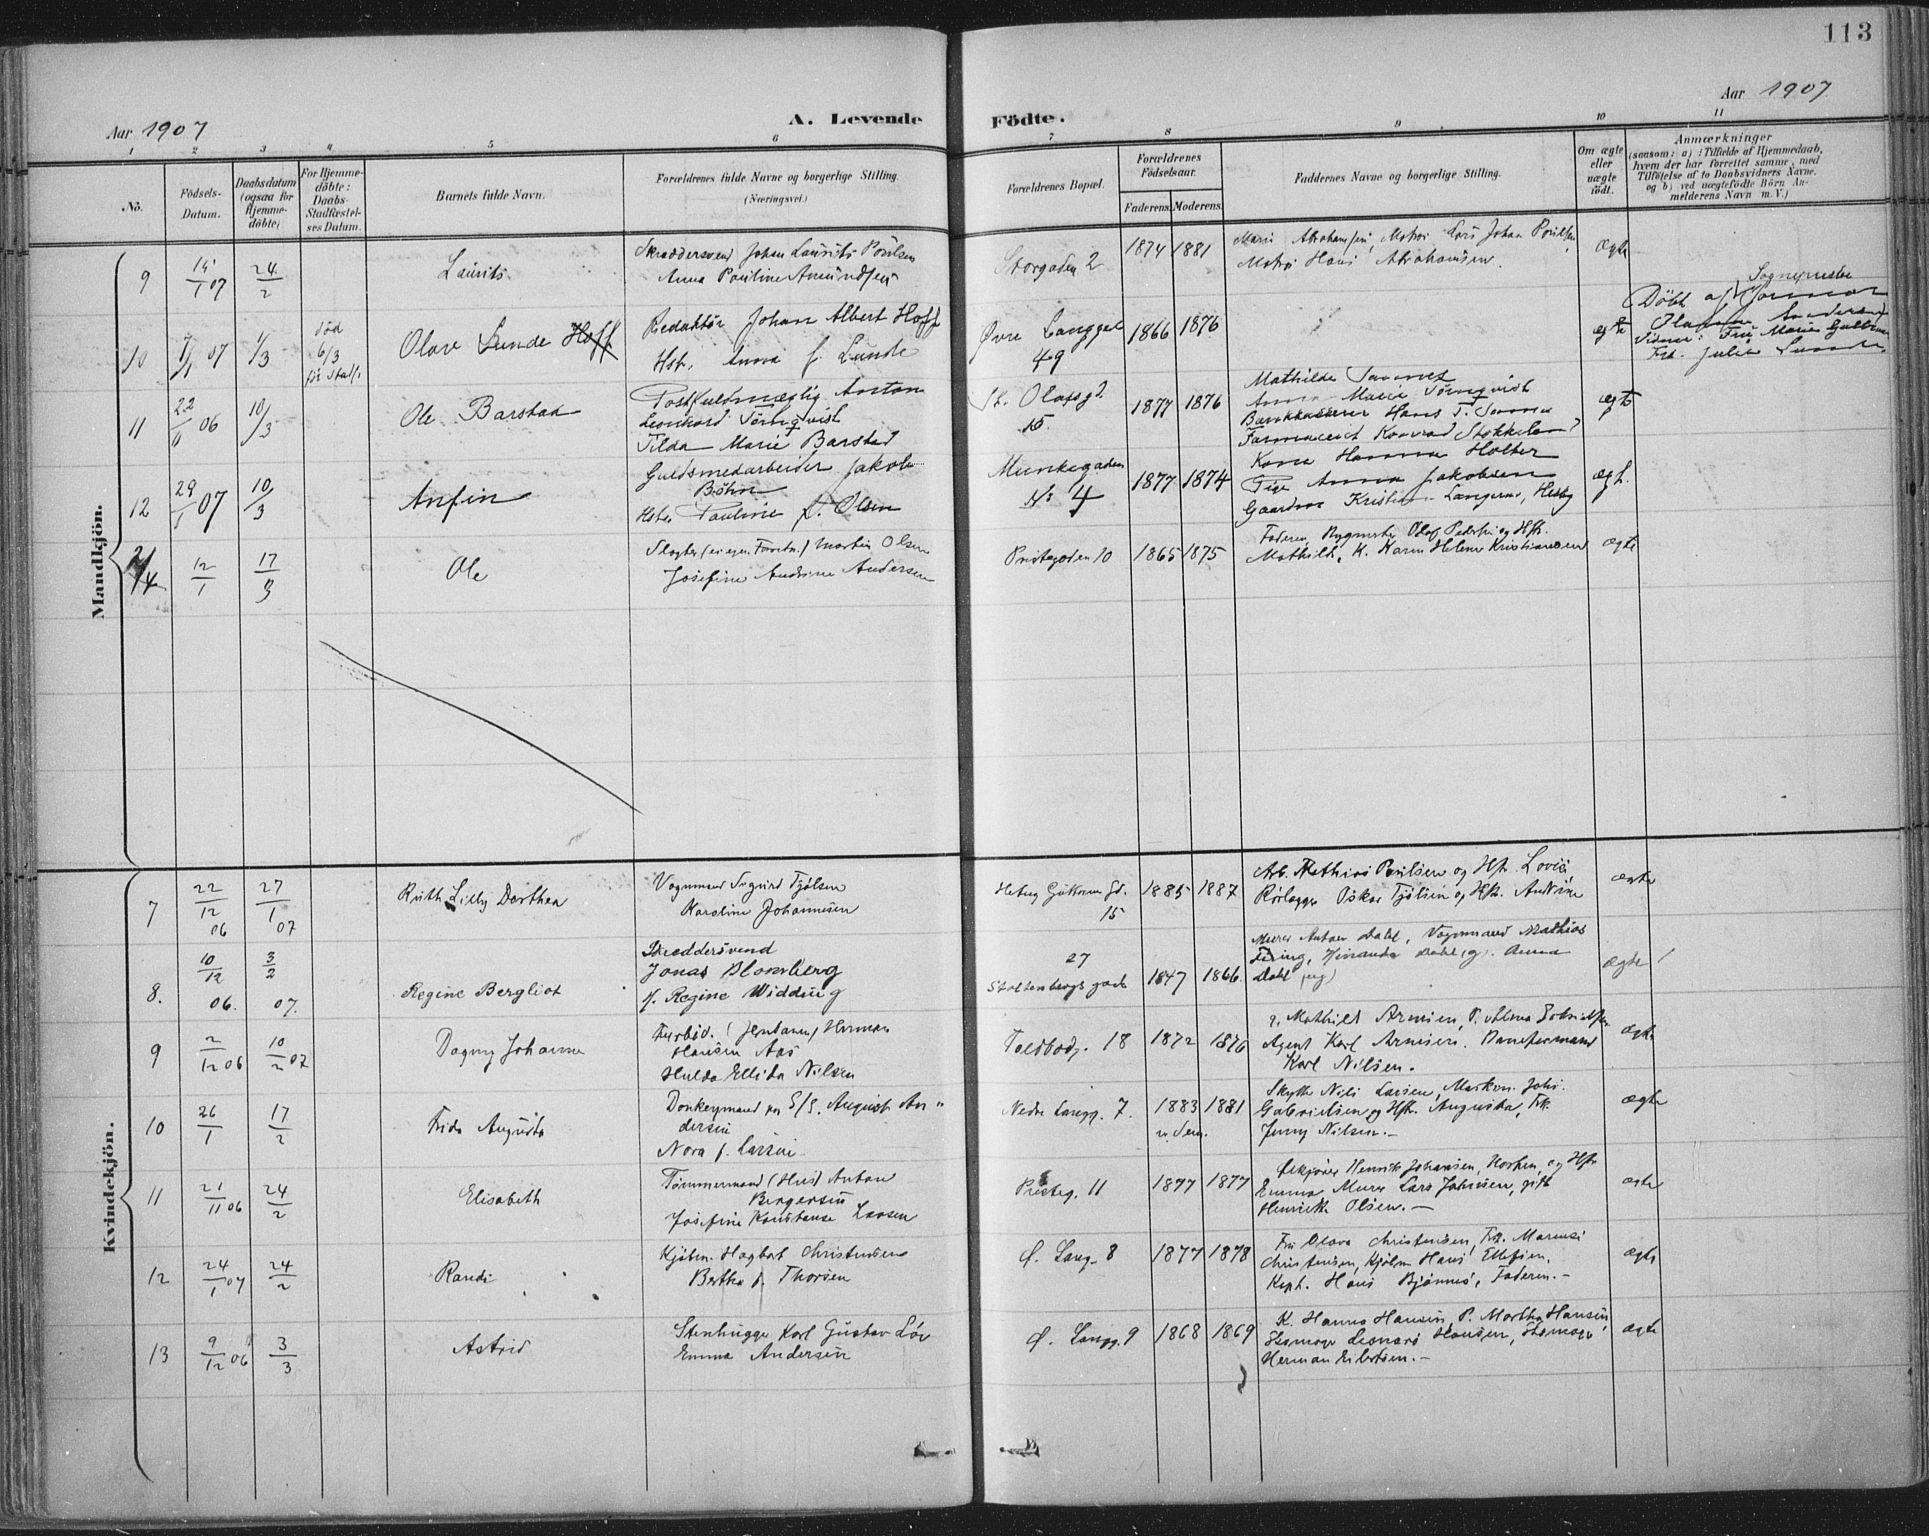 113
Aar 1907
A. Levende
Födte.
Aar 1907
1 2 3 4 5 6 7 8 9 10 11
No.
Födsels-
Datum.
Daabsdatum
(ogsaa for
Hjemme-
döbte)
For Hjemme-
döbte:
Daabs-
Stadfæstel-
ses Datum.
Barnets fulde Navn.
Forældrenes fulde Navne og borgerlige Stilling.
(Næringsvei.)
Forældrenes Bopæl.
Forældrenes
Födselsaar.
Faderens. Moderens.
Faddernes Navne og borgerlige Stilling.
Om ægte
eller
uægte
födt.
Anmærkninger
(saasom: a) i Tilfælde af Hjemmedaab,
hvem der har forrettet samme, med
Tilföielse af to Daabsvidners Navne,
og b) ved uægtefödte Börn An-
melderens Navn m.V.)
Mandkjön.
9 15/1 07 24/2 Laurits
Skræddersvend Johan Laurits Poulsen
Anna Pauline Amundsen
Storgaden 2 1874 1881
Marie Abrahamsen, Matros Lars Johan Poulsen,
Matros Hans Abrahamsen.
Ægte
10 7/1 07 1/3 død
6/3
før Stadf.
Olav Lunde Hoff
Redaktør Johan Albert Hoff
Hstr. Anna f. Lunde
Øvre Langgd
49
1866 1876
ægte
Sognepræst
Døbt af
Vidner: Fru Marie
Frk. Julie Lunde.
11 22/11 06 10/3 Ole Barstad
Postfuldmægtig Anton
Leonhard Törnqvist
Tilda Marie Barstad
St. Olafsgd.
15.
1877 1876
Mathilde
Anna Marie Törnqvist
Bankkasserer Hans T.
Farmaceut Konrad
ægte
12 29/1 07 10/3 Anfin
Guldsmedarbeider Jakob
Böhn
Hstr. Pauline f. Olsen
Munkegaden
No 4
1877 1874
Kona Hanna Holter
Pige Anna Jakobsen
Gaardbr. Kristian Langerud, Hesby
ægt.
12/1 17/3 Ole
Slagter (i egen Forretn.) Martin Olsen
Josefine Andrine Andersen
Prestegaden 10 1865 1875
Faderen, Bygmester Olof Pedersen og Hst.
Mathild, K. Karen Helene Kristiansen
ægte
Kvindekjön.
7 22/12 06 27/1 07 Ruth Lilly Dorthea
Vognmand Sigurd Tjølsen
Karoline Johannesen
15
1885 1887
Arb. Mathias Poulsen og Hst. Lovise,
Rørlægger Oskar Tjølsen og Hst. Andrine
ægte
8. 10/12 06. 3/2 07. Regine Bergliot
Skræddersvend
Jonas Blomberg
f. Regine Widding
27
Stoltenbergs gade
1847 1866
Murer Anton Dahl, Vognmand Mathias
Dahl (ug)
ægte
9 2/12 06 10/2 07 Dagny Johanne
Fyrbød. (Jernbanen) Herman
Hansen Aas
Hulda Ellida Nilsen
Toldbodg. 18 1872 1876
Agent Karl Arnesen.
Karl Nilsen.
ægte
10 26/1 17/2 Frida Augusta
Donkeymand paa S/S. August An-
dersen
Nora f. Larsen
Nedre Langg. 7. 1883 1881
Skytte Nils Larsen, Maskin. Johs.
Gabrielsen og Hst. Augusta, Frk.
Jenny Nilsen.—
ægte
11 21/11 06 24/2 Elisabeth
Tømmermand (Hus) Anton
Bergersen
Josefine Konstanse Larsen
Presteg. 11 1877 1877
Henrik Johansen, Horten, og Hst.
Emma, Murer Lars Johnsen, gift
Henrikke Olsen.—
ægte
12 24/1 07 24/2 Randi
Kjøbm. Hagbart Christensen
Bertha f. Thorsen
Ø. Lang. 8 1877 1878
Fru Olava Christensen, Frk.
Christensen, Kjøbm Hans Ellefsen,
Kapt. Hans Bjønnes, Faderen.—
ægte
13 9/12 06 3/3 Astrid
Stenhugger Karl Gustav Löv
Emma Andersen
Ø. Langg. 9 1868 1869
K. Hanna Hansen, P. Martha Hansen,
Skomager Leonard Hansen, Skomager
Herman Eilertsen.—
ægte